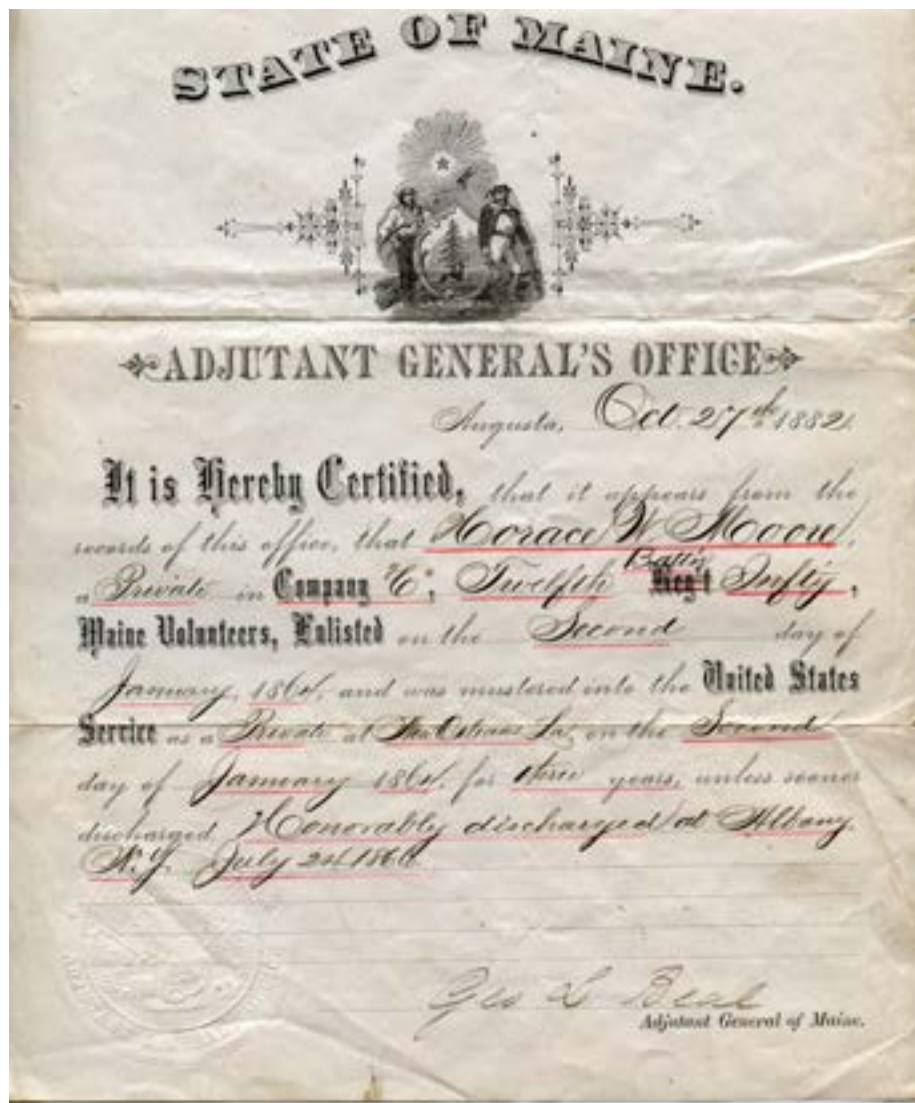 STATE OF MAINE.
ADJUTANT GENERAL'S OFFICE
Augusta, Oct. 27th 1882.
It is Hereby Certified, that it appears from the
records of this office, that Horace W Moore,
Batt'n
a Private in Company "C", Twelfth Reg't Inft'y,
Maine Volunteers, Enlisted on the Second day of
January, 1864, and was mustered into the United States
Service as a Private at New Orleans La, on the Second
day of January 1864, for three years, unless sooner
discharged. Honorably discharged at Albany
N.Y. July 1866
Geo L Beal
Adjutant General of Maine.